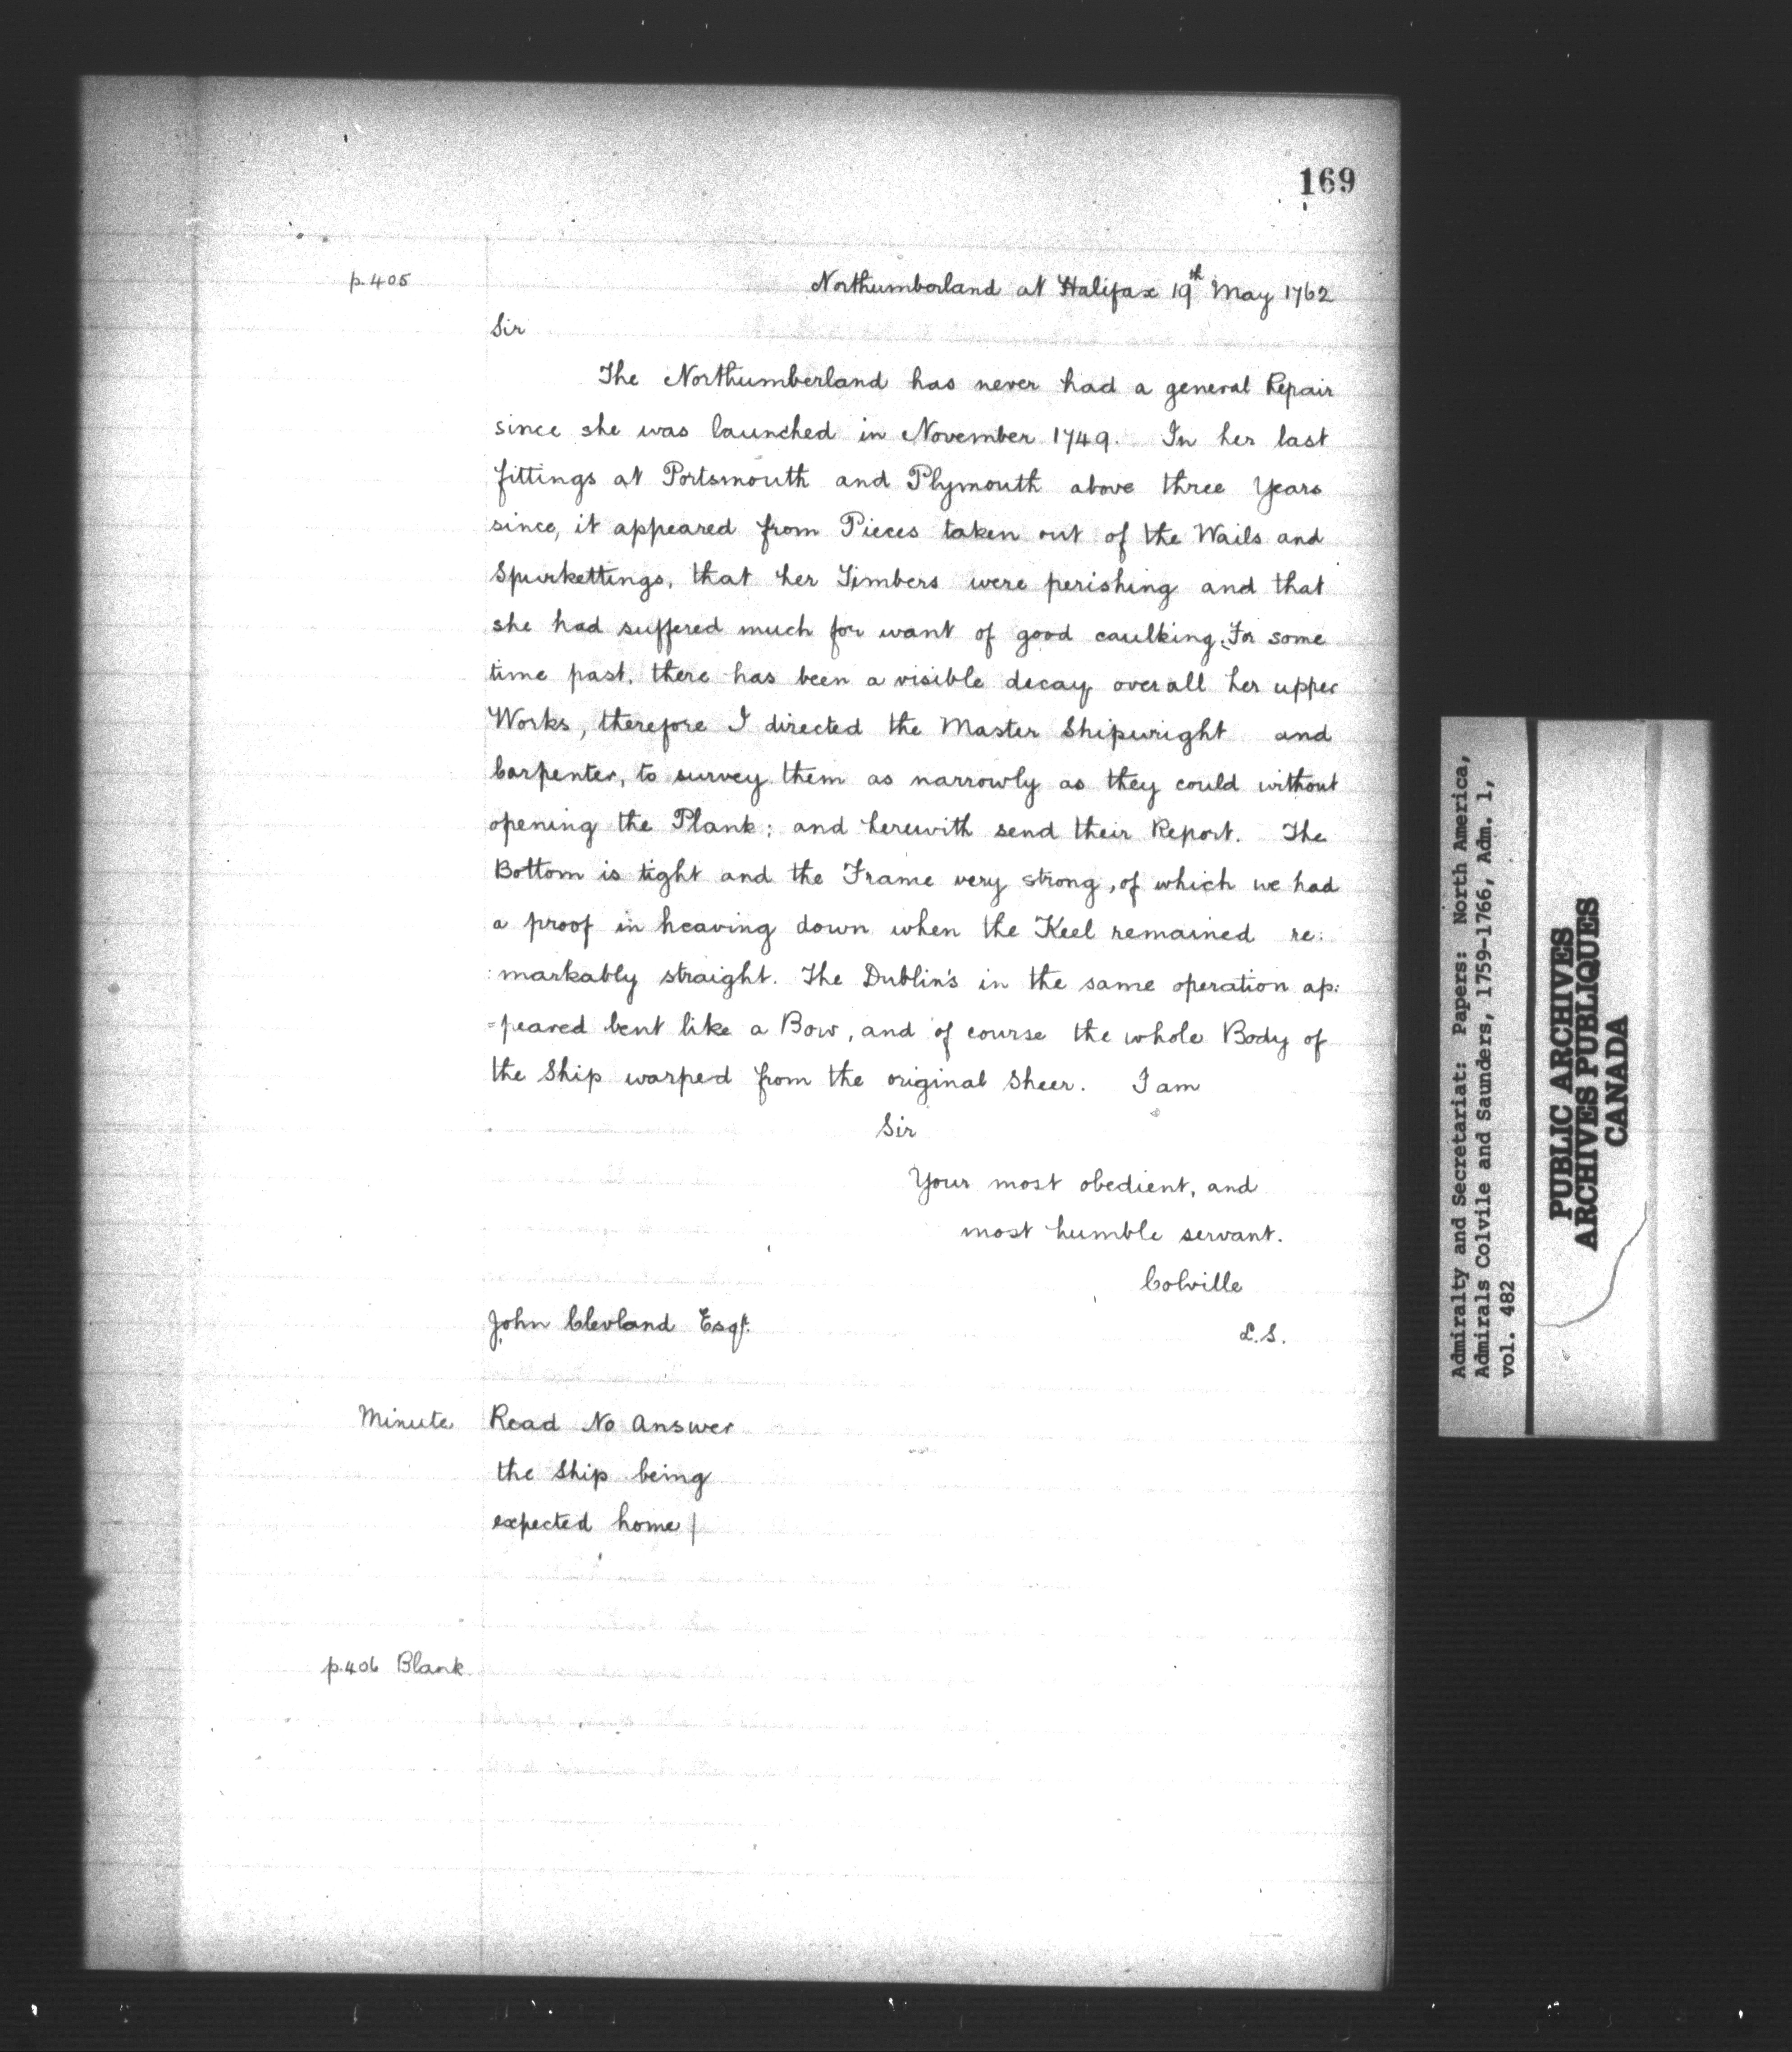 169
p. 405
Northumberland at Halifax 19th May 1762
Sir
The Northumberland has never had a general Repair
since she was launched in November 1749. In her last
fittings at Portsmouth and Plymouth above three Years
since, it appeared from Pieces taken out of the Wails and
Spurkettings, that her Timbers were perishing and that
she had suffered much for want of good caulking. For some
time past, there has been a visible decay over all her upper
Works, therefore I directed the Master Shipwright and
Carpenter, to survey them as narrowly as they could without
opening the Plank; and herewith send their Report. The
Bottom is tight and the Frame very strong, of which we had
a proof in heaving down when the Keel remained re:
:markably straight. The Dublin's in the same operation ap:
=peared bent like a Bow, and of course the whole Body of
the Ship warped from the original Sheer. I am
Sir
Your most obedient, and
most humble servant.
Colville
L.S.
John Clevland Esqr.
Minute Read No Answer
the Ship being
expected home/
p.406 Blank
Admiralty and Secretariat: Papers: North America,
Admirals Colvile and Saunders, 1759-1766, Adm. 1,
vol. 482
PUBLIC ARCHIVES
ARCHIVES PUBLIQUES
CANADA